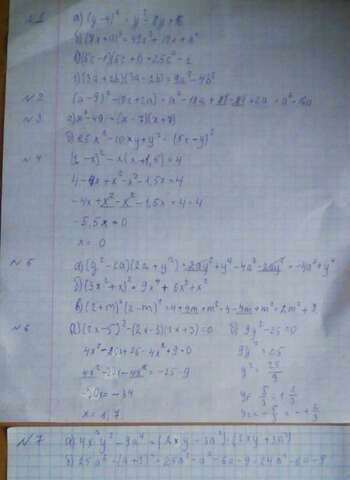 №1 а) (y-4)² = y² - 8y + 16
б) (7x+a)² = 49x² + 14x + a²
в) (5c-1)(5c+1) = 25c² - 1
г) (3a+2b)(3a-2b) = 9a² - 4b²
№2 (a-9)² - (81+2a) = a² - 18a + 81 - 81 + 2a = a² - 16a
№3 а) x² - 49 = (x-7)(x+7)
б) 25x² - 10xy + y² = (5x-y)²
№4 (2-x)² - x(x+1,5) = 4
4 - 4x + x² - x² - 1,5x = 4
-4x + x² - x² - 1,5x = 4-4
-5,5x = 0
x = 0
№5 а) (y²-2a)(2a+y²) = 2ay² + y⁴ - 4a² - 2ay² = -4a² + y⁴
б) (3x²+x)² = 9x⁴ + 6x³ + x²
в) (2+m)²(2-m)² = 4 + 4m + m² + 4 - 4m + m² = 2m² + 8
№6 а) (2x-5)² - (2x-3)(2x+3) = 0 б) 9y² - 25 = 0
4x² - 20x + 25 - 4x² + 9 = 0 9y² = 25
4x² - 20x - 4x² = -25 - 9 y² = 25/9
-20x = -34
x = 1,7
№7 а) 4x²y² - 9a⁴ = (2xy - 3a²)(2xy + 3a²)
б) 25a² - (a+3)² = 25a² - a² - 6a - 9 = 24a² - 6a - 9